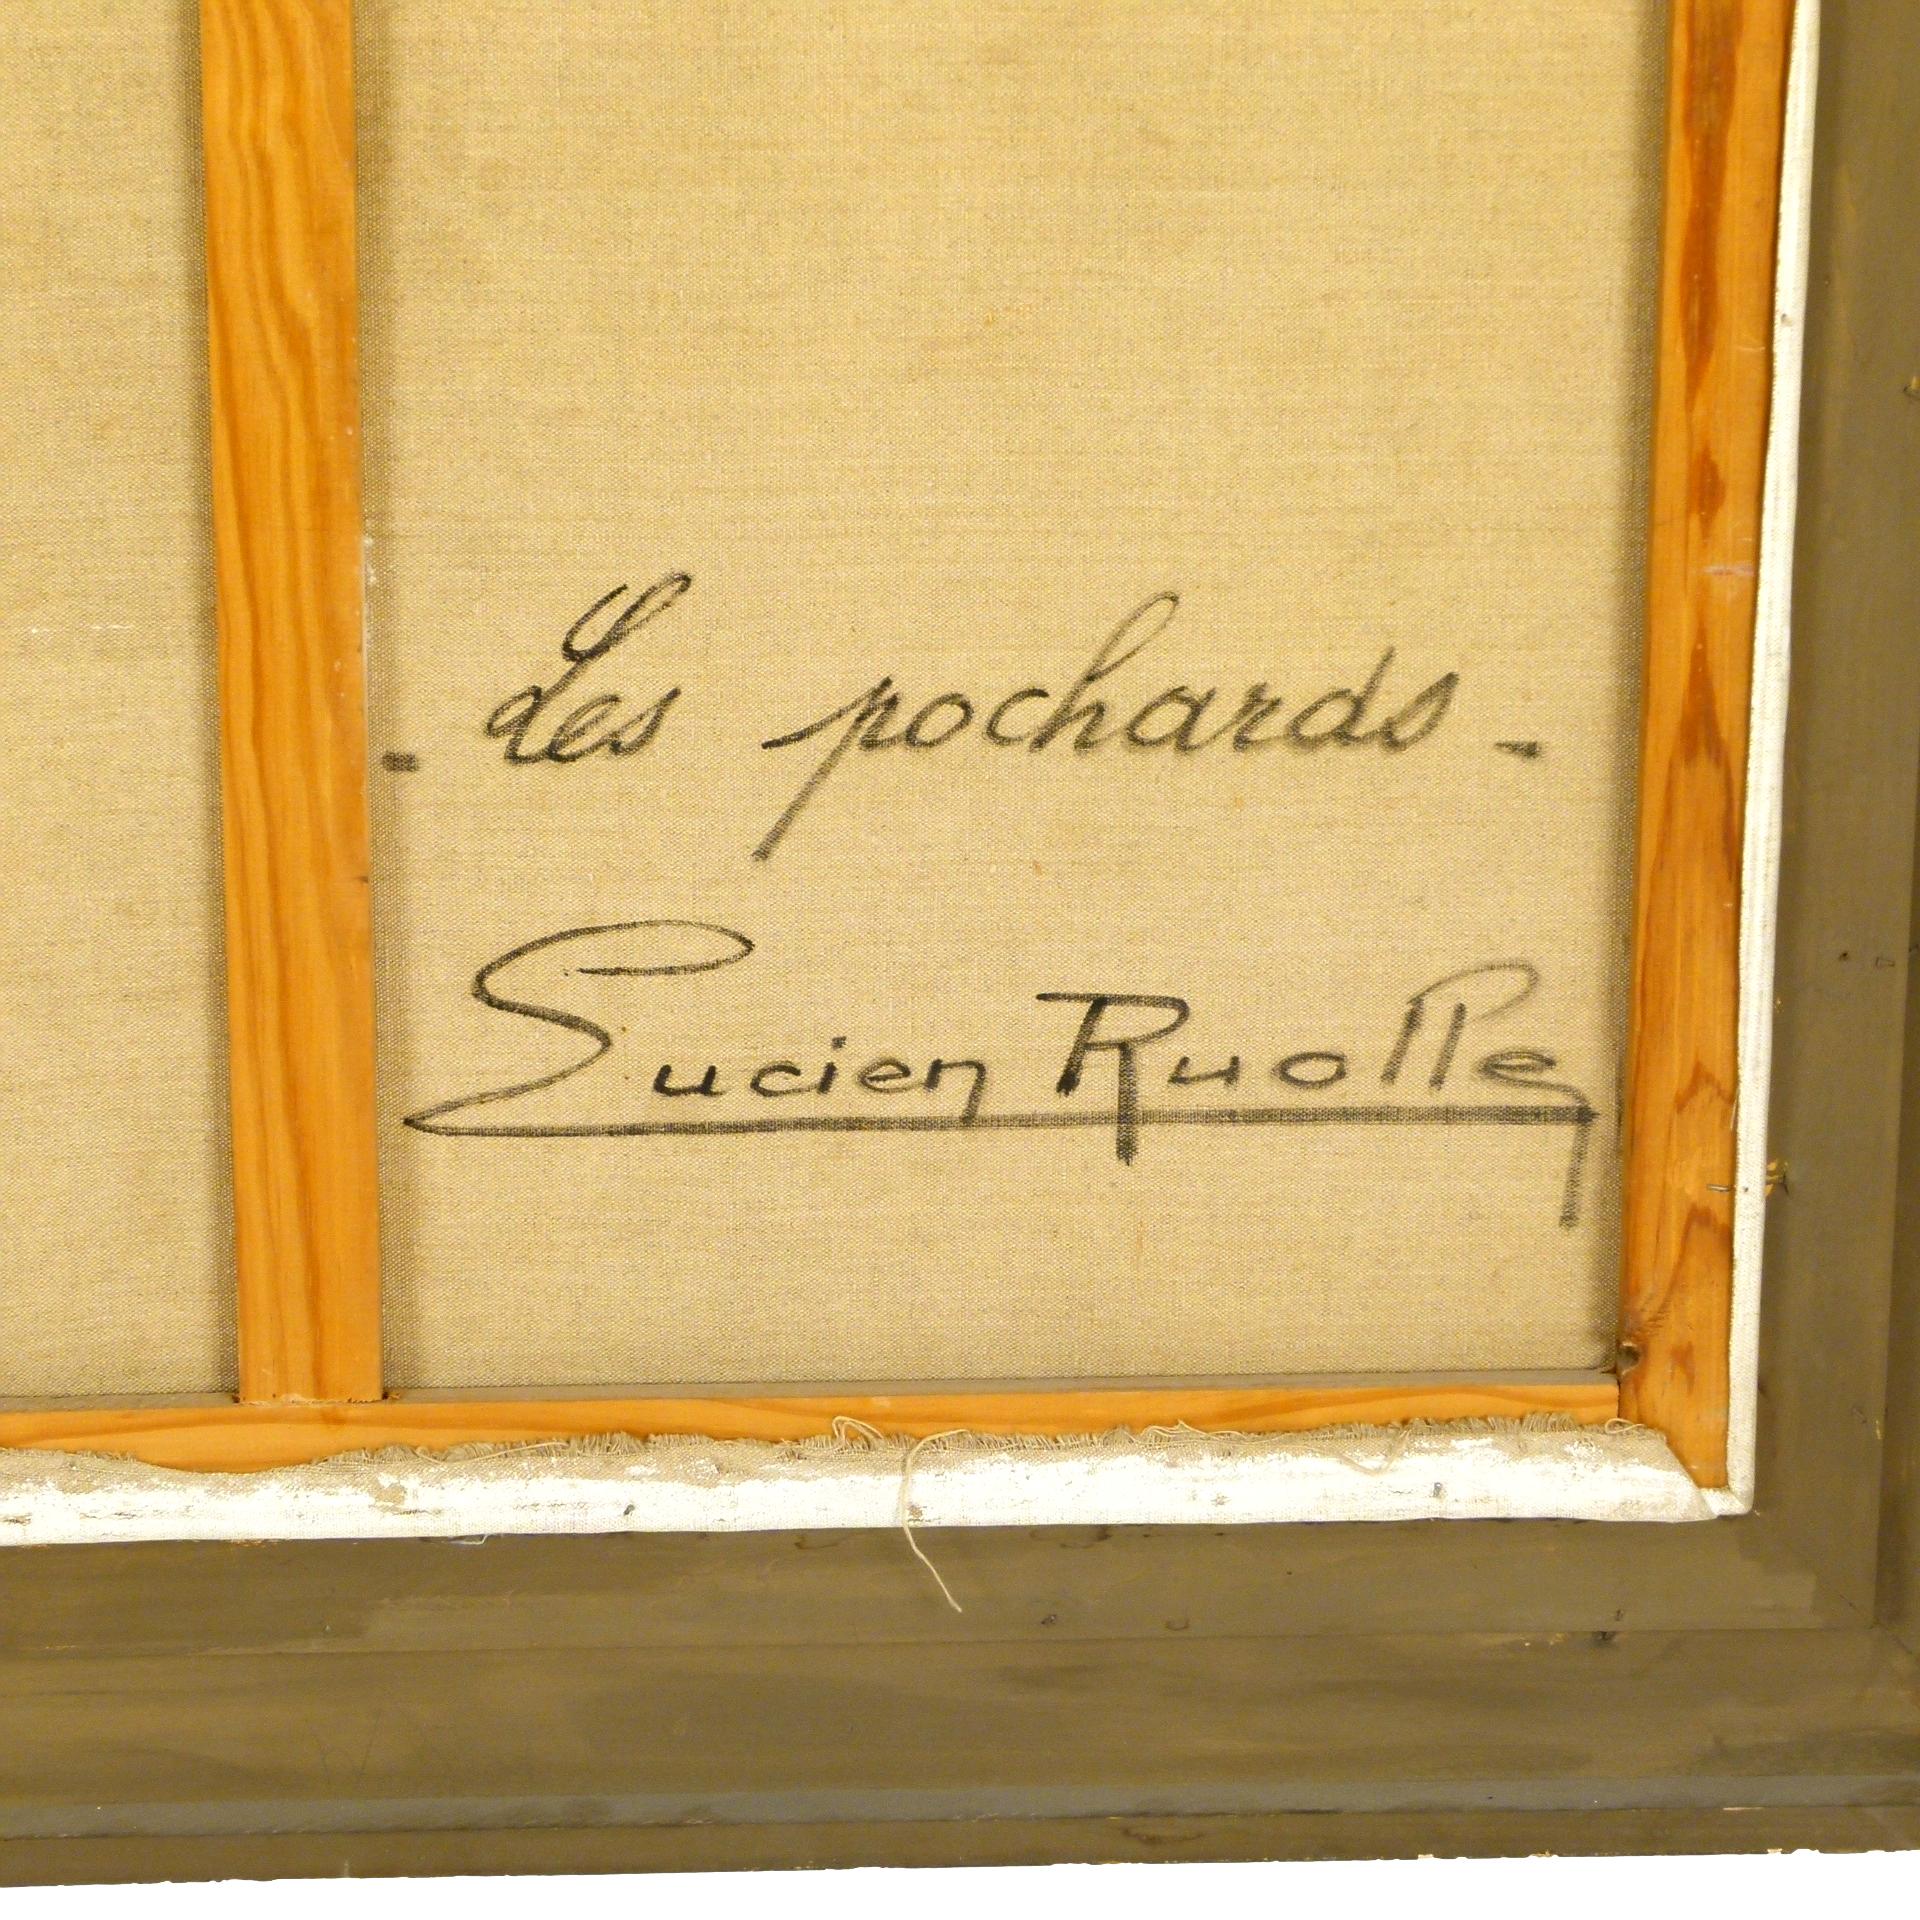 - Les pochards -
Lucien Ruolle